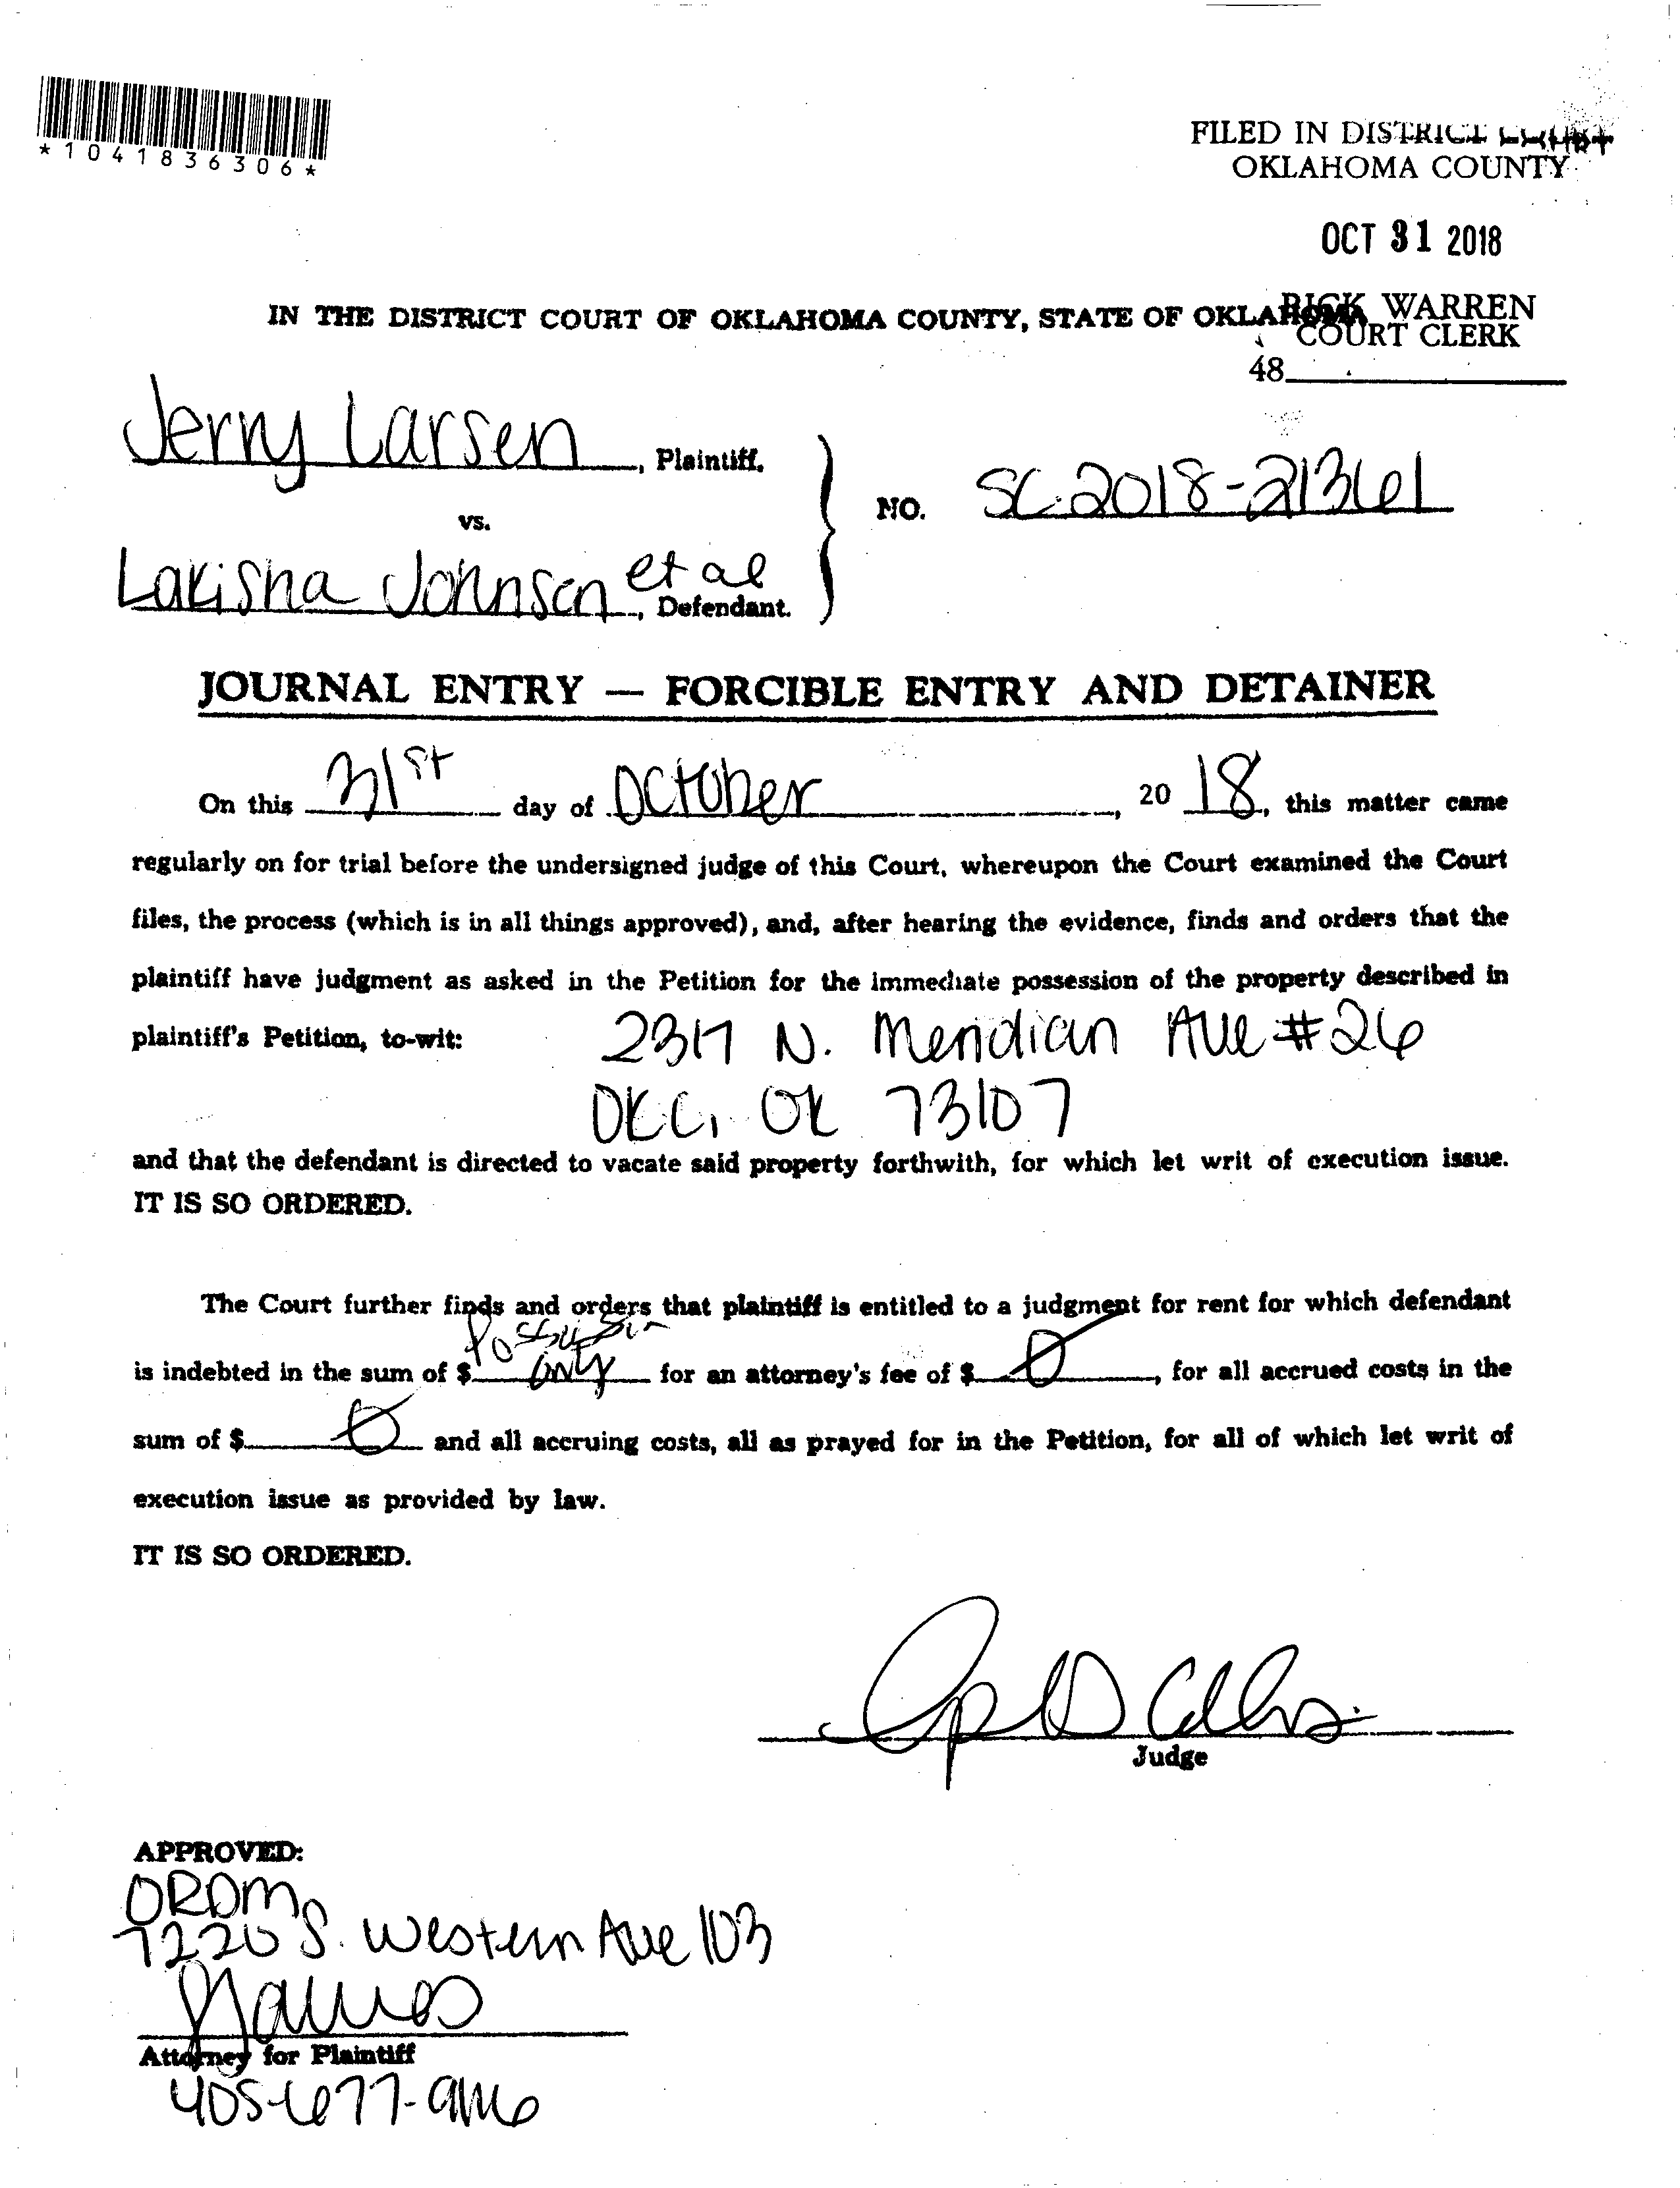 *1041836306*
FILED IN DISTRICT COURT
OKLAHOMA COUNTY
OCT 31 2018
RICK WARREN
COURT CLERK
48
IN THE DISTRICT COURT OF OKLAHOMA COUNTY, STATE OF OKLAHOMA
Jerry Larsen, Plaintiff,
vs.
NO. SC-2018-21361
Lakisha Johnson et al, Defendant.
JOURNAL ENTRY — FORCIBLE ENTRY AND DETAINER
On this 31st day of October, 20 18, this matter came
regularly on for trial before the undersigned judge of this Court, whereupon the Court examined the Court
files, the process (which is in all things approved), and, after hearing the evidence, finds and orders that the
plaintiff have judgment as asked in the Petition for the immediate possession of the property described in
plaintiff's Petition, to-wit: 2317 N. Meridian Ave #26
OKC, OK 73107
and that the defendant is directed to vacate said property forthwith, for which let writ of execution issue.
IT IS SO ORDERED.
The Court further finds and orders that plaintiff is entitled to a judgment for rent for which defendant
possession
is indebted in the sum of $ only for an attorney's fee of $ 0, for all accrued costs in the
sum of $ 0 and all accruing costs, all as prayed for in the Petition, for all of which let writ of
execution issue as provided by law.
IT IS SO ORDERED.
Judge
APPROVED:
ORDM
7220 S. Western Ave 103
Attorney for Plaintiff